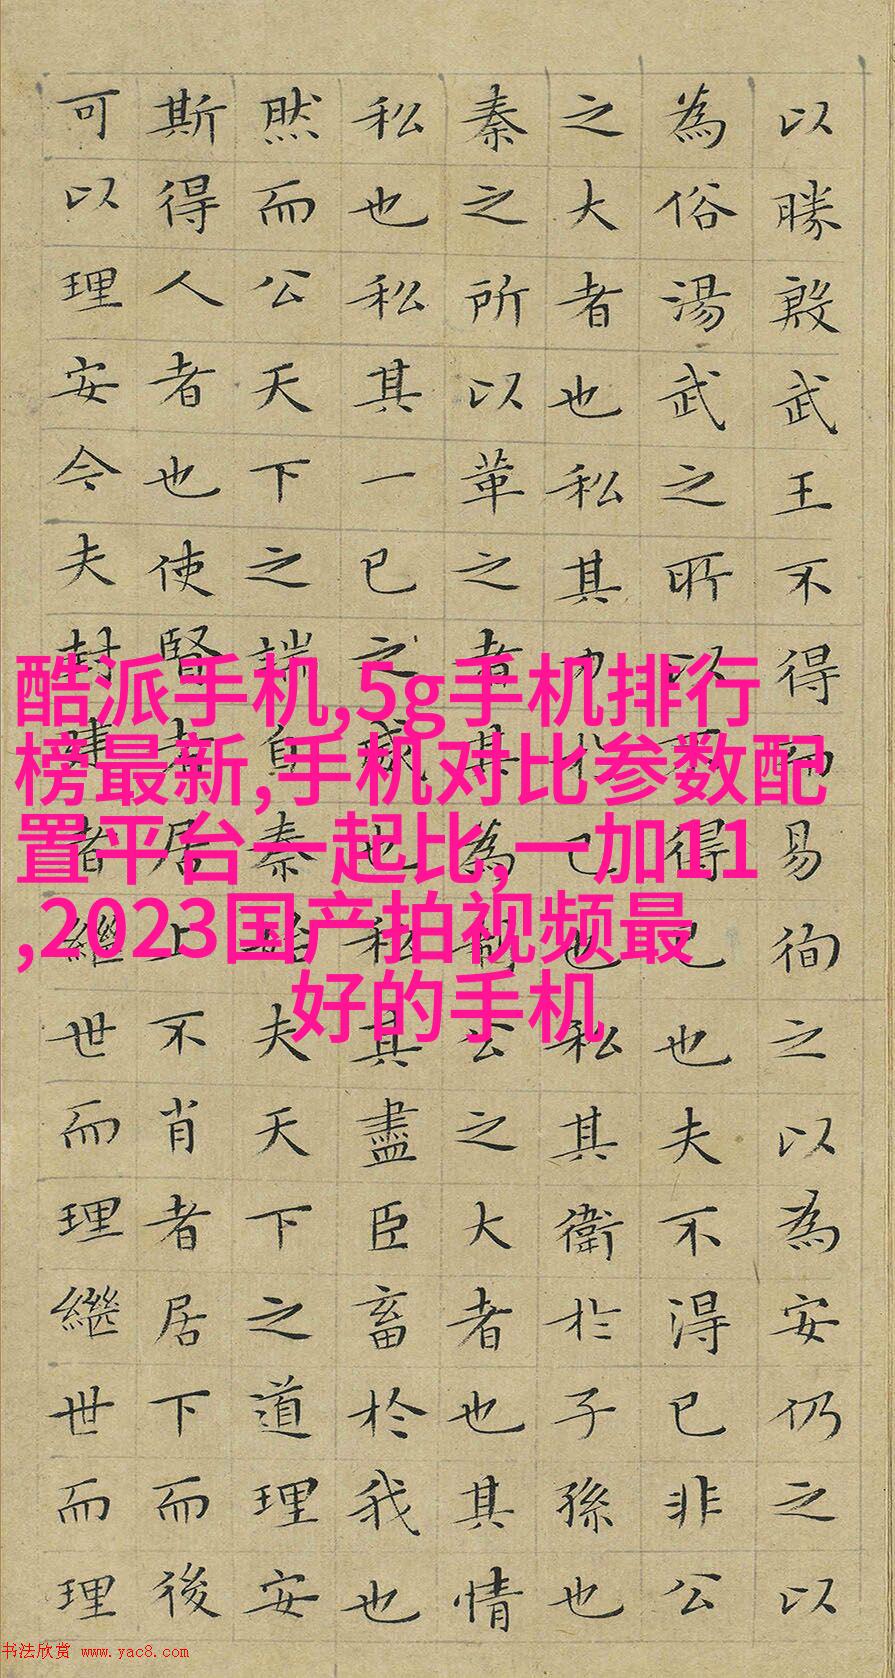 以勝殷武王不得而易徇之以為安仍之以
為俗湯武之所以不得已也夫不得已非公
之大者也私其力於己也私其衛於子孫也
秦之所以革之者其為制公之大者也其情
私也私其一己之威也私其盡臣畜於我也
然而公天下之端自秦始夫天下之道理安
斯得人者也使賢者居上不肖者居下而後
可以理安今夫封建者繼世而理繼世而理
酷派手机,5g手机排行
榜最新,手机对比参数配
置平台一起比,一加11
,2023国产拍视频最
好的手机
书法欣赏 www.yac8.com